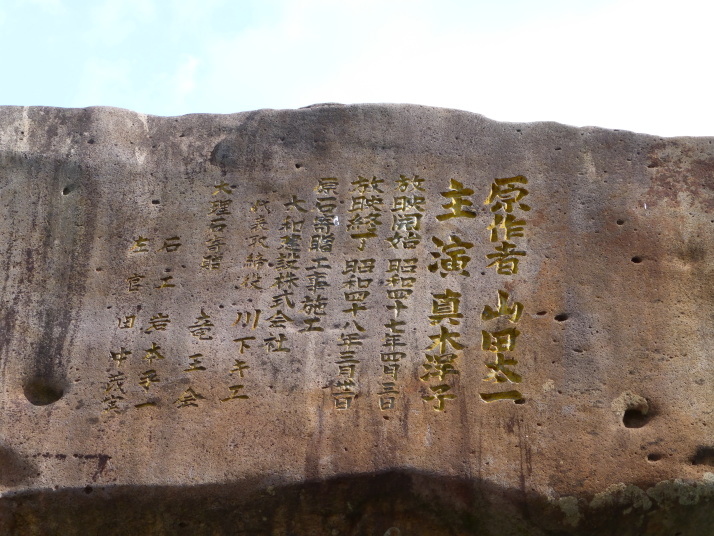 原作者 山田太一
主演 真木洋子
放映開始 昭和四十七年四月三日
放映終了 昭和四十八年三月
原石寄贈工事施工
大和建設株式会社
代表取締役 川下
大理石寄贈 竜王会
石工 岩本
左官 田中